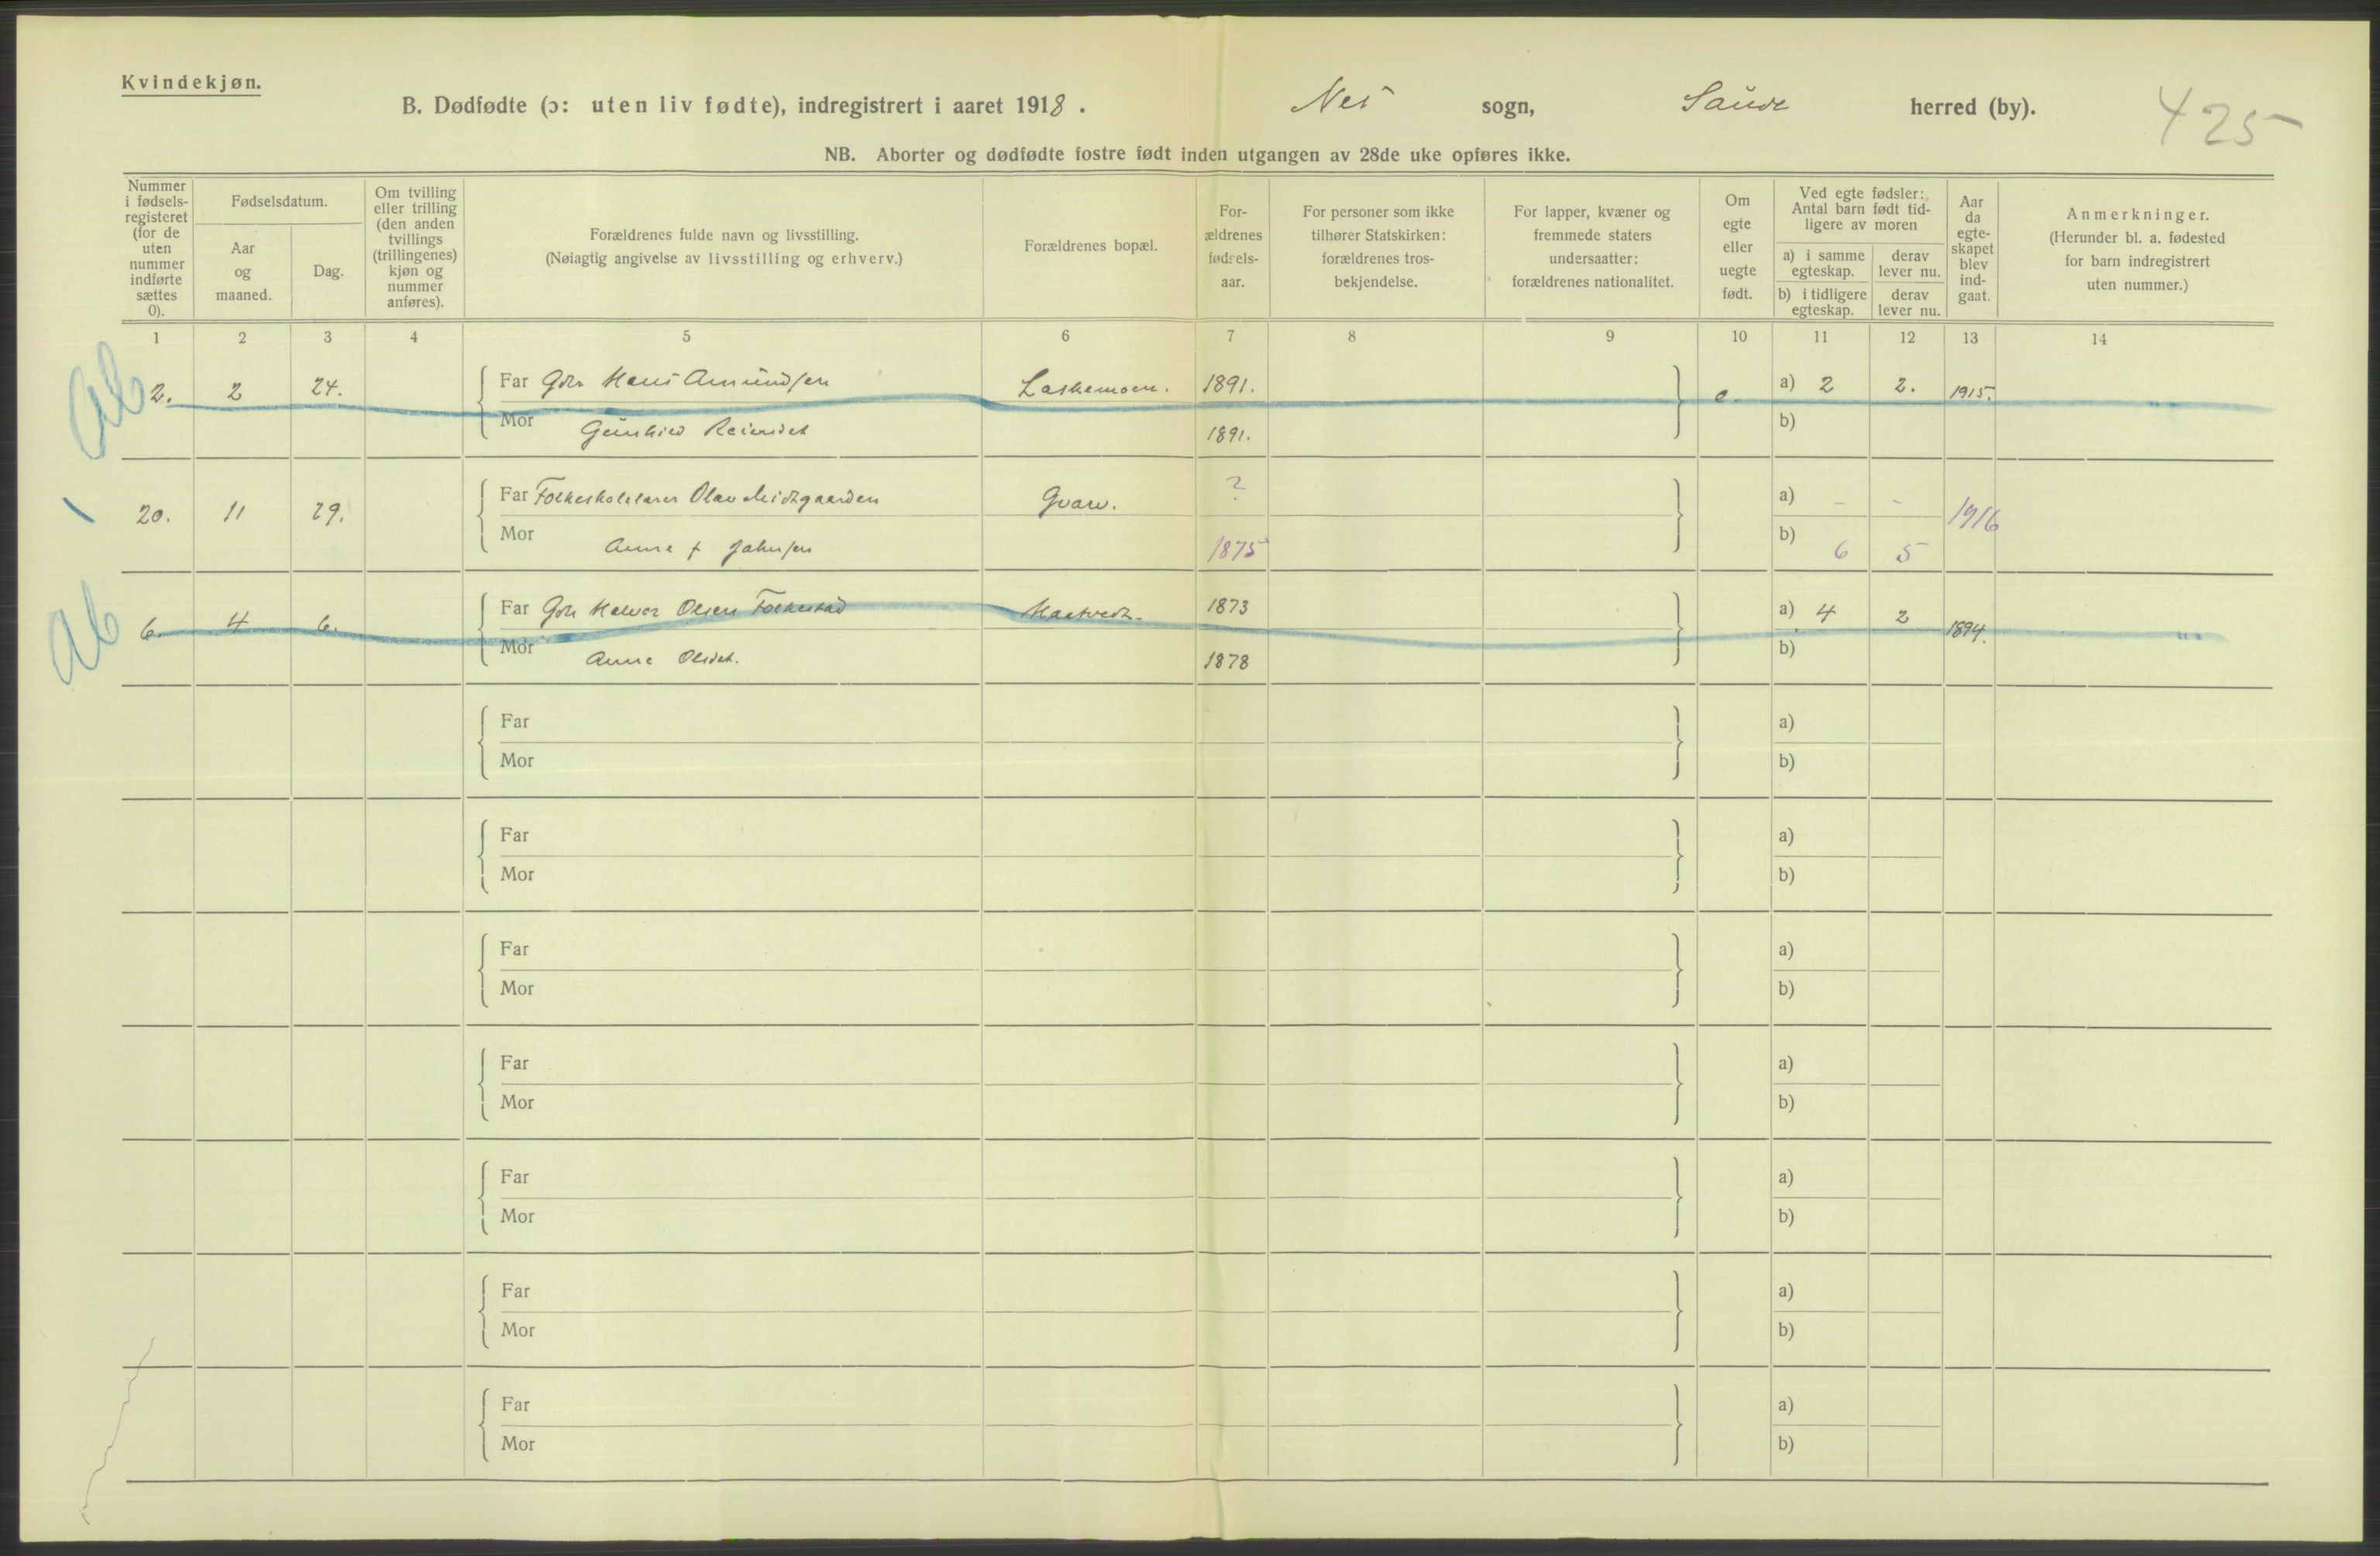 Kvindekjøn.
B. Dødfødte (ɔ: uten liv fødte), indregistrert i aaret 1918. Nes sogn, Saude herred (by).
425
NB. Aborter og dødfødte fostre født inden utgangen av 28de uke opføres ikke.
Nummer i fødsels-registeret (for de uten nummer indførte sættes 0).
Fødselsdatum.
Aar og maaned.
Dag.
Om tvilling eller trilling (den anden tvillings (trillingenes) kjøn og nummer anføres).
Forældrenes fulde navn og livsstilling.
(Nøiagtig angivelse av livsstilling og erhverv.)
Forældrenes bopæl.
For-ældrenes fødsels-aar.
For personer som ikke tilhører Statskirken: forældrenes tros-bekjendelse.
For lapper, kvæner og fremmede staters undersaatter: forældrenes nationalitet.
Om egte eller uegte født.
Ved egte fødsler: Antal barn født tid-ligere av moren
a) i samme egteskap.
derav lever nu.
b) i tidligere egteskap.
derav lever nu.
Aar da egte-skapet blev ind-gaat.
Anmerkninger.
(Herunder bl. a. fødested for barn indregistrert uten nummer.)
1 2 3 4 5 6 7 8 9 10 11 12 13 14
Ab 2. 2 24. Far Gbr. Hans Amundsen Laskemoen. 1891. e. a) 2 2. 1915.
Mor Gunhild Reiersdet 1891. b)
20. 11 29. Far Folkeskolelærer Olav Midtgaarden Gvarv. ? a) - - 1916
Mor Anne f Johnsen 1875 b) 6 5
Ab 6. 4 6. Far Gbr Halvor Olsen Folkestad 1873 a) 4 2 1894.
Mor Anne Olsdet. 1878 b)
Far a)
Mor b)
Far a)
Mor b)
Far a)
Mor b)
Far a)
Mor b)
Far a)
Mor b)
Far a)
Mor b)
Far a)
Mor b)